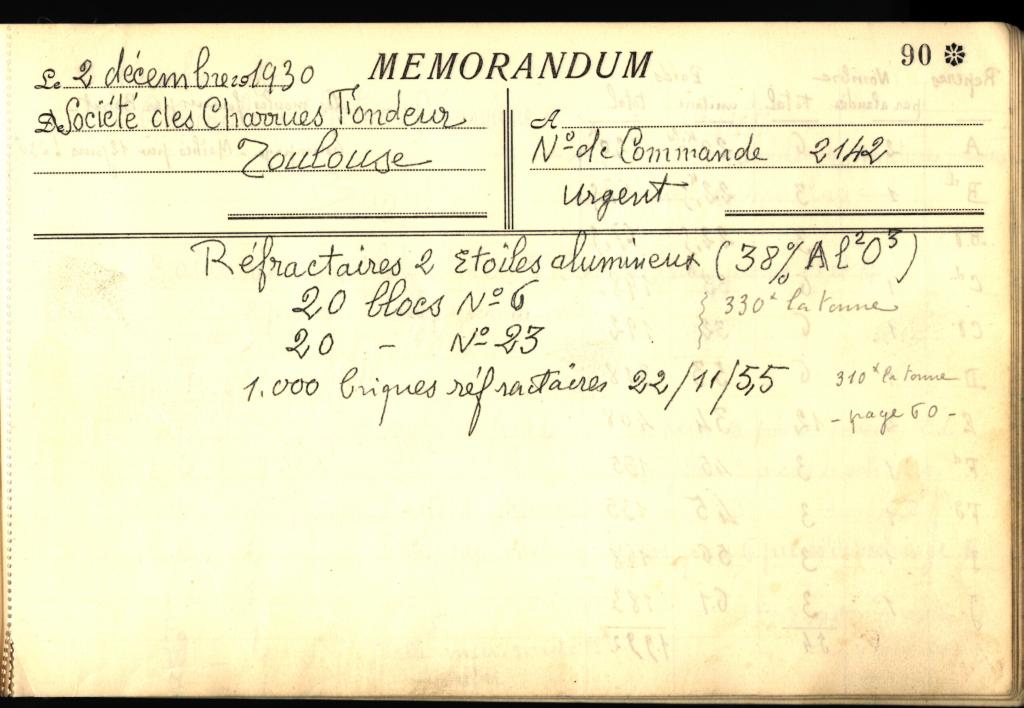 MEMORANDUM
90
Le 2 décembre 1930
De Société des Charrues Fondeur
Toulouse
A
No de Commande 2142
Urgent
Réfractaires 2 Etoiles alumineux (38% Al²O³)
20 blocs No 6
20 - No 23
330 x la tonne
1.000 briques réfractaires 22/11/5,5
310 x la tonne
- page 60 -